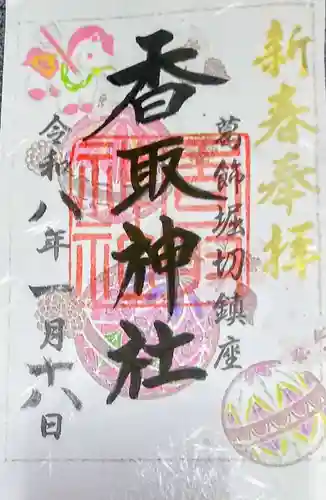 新春奉拝
葛飾堀切鎮座
香取神社
令和八年一月十八日